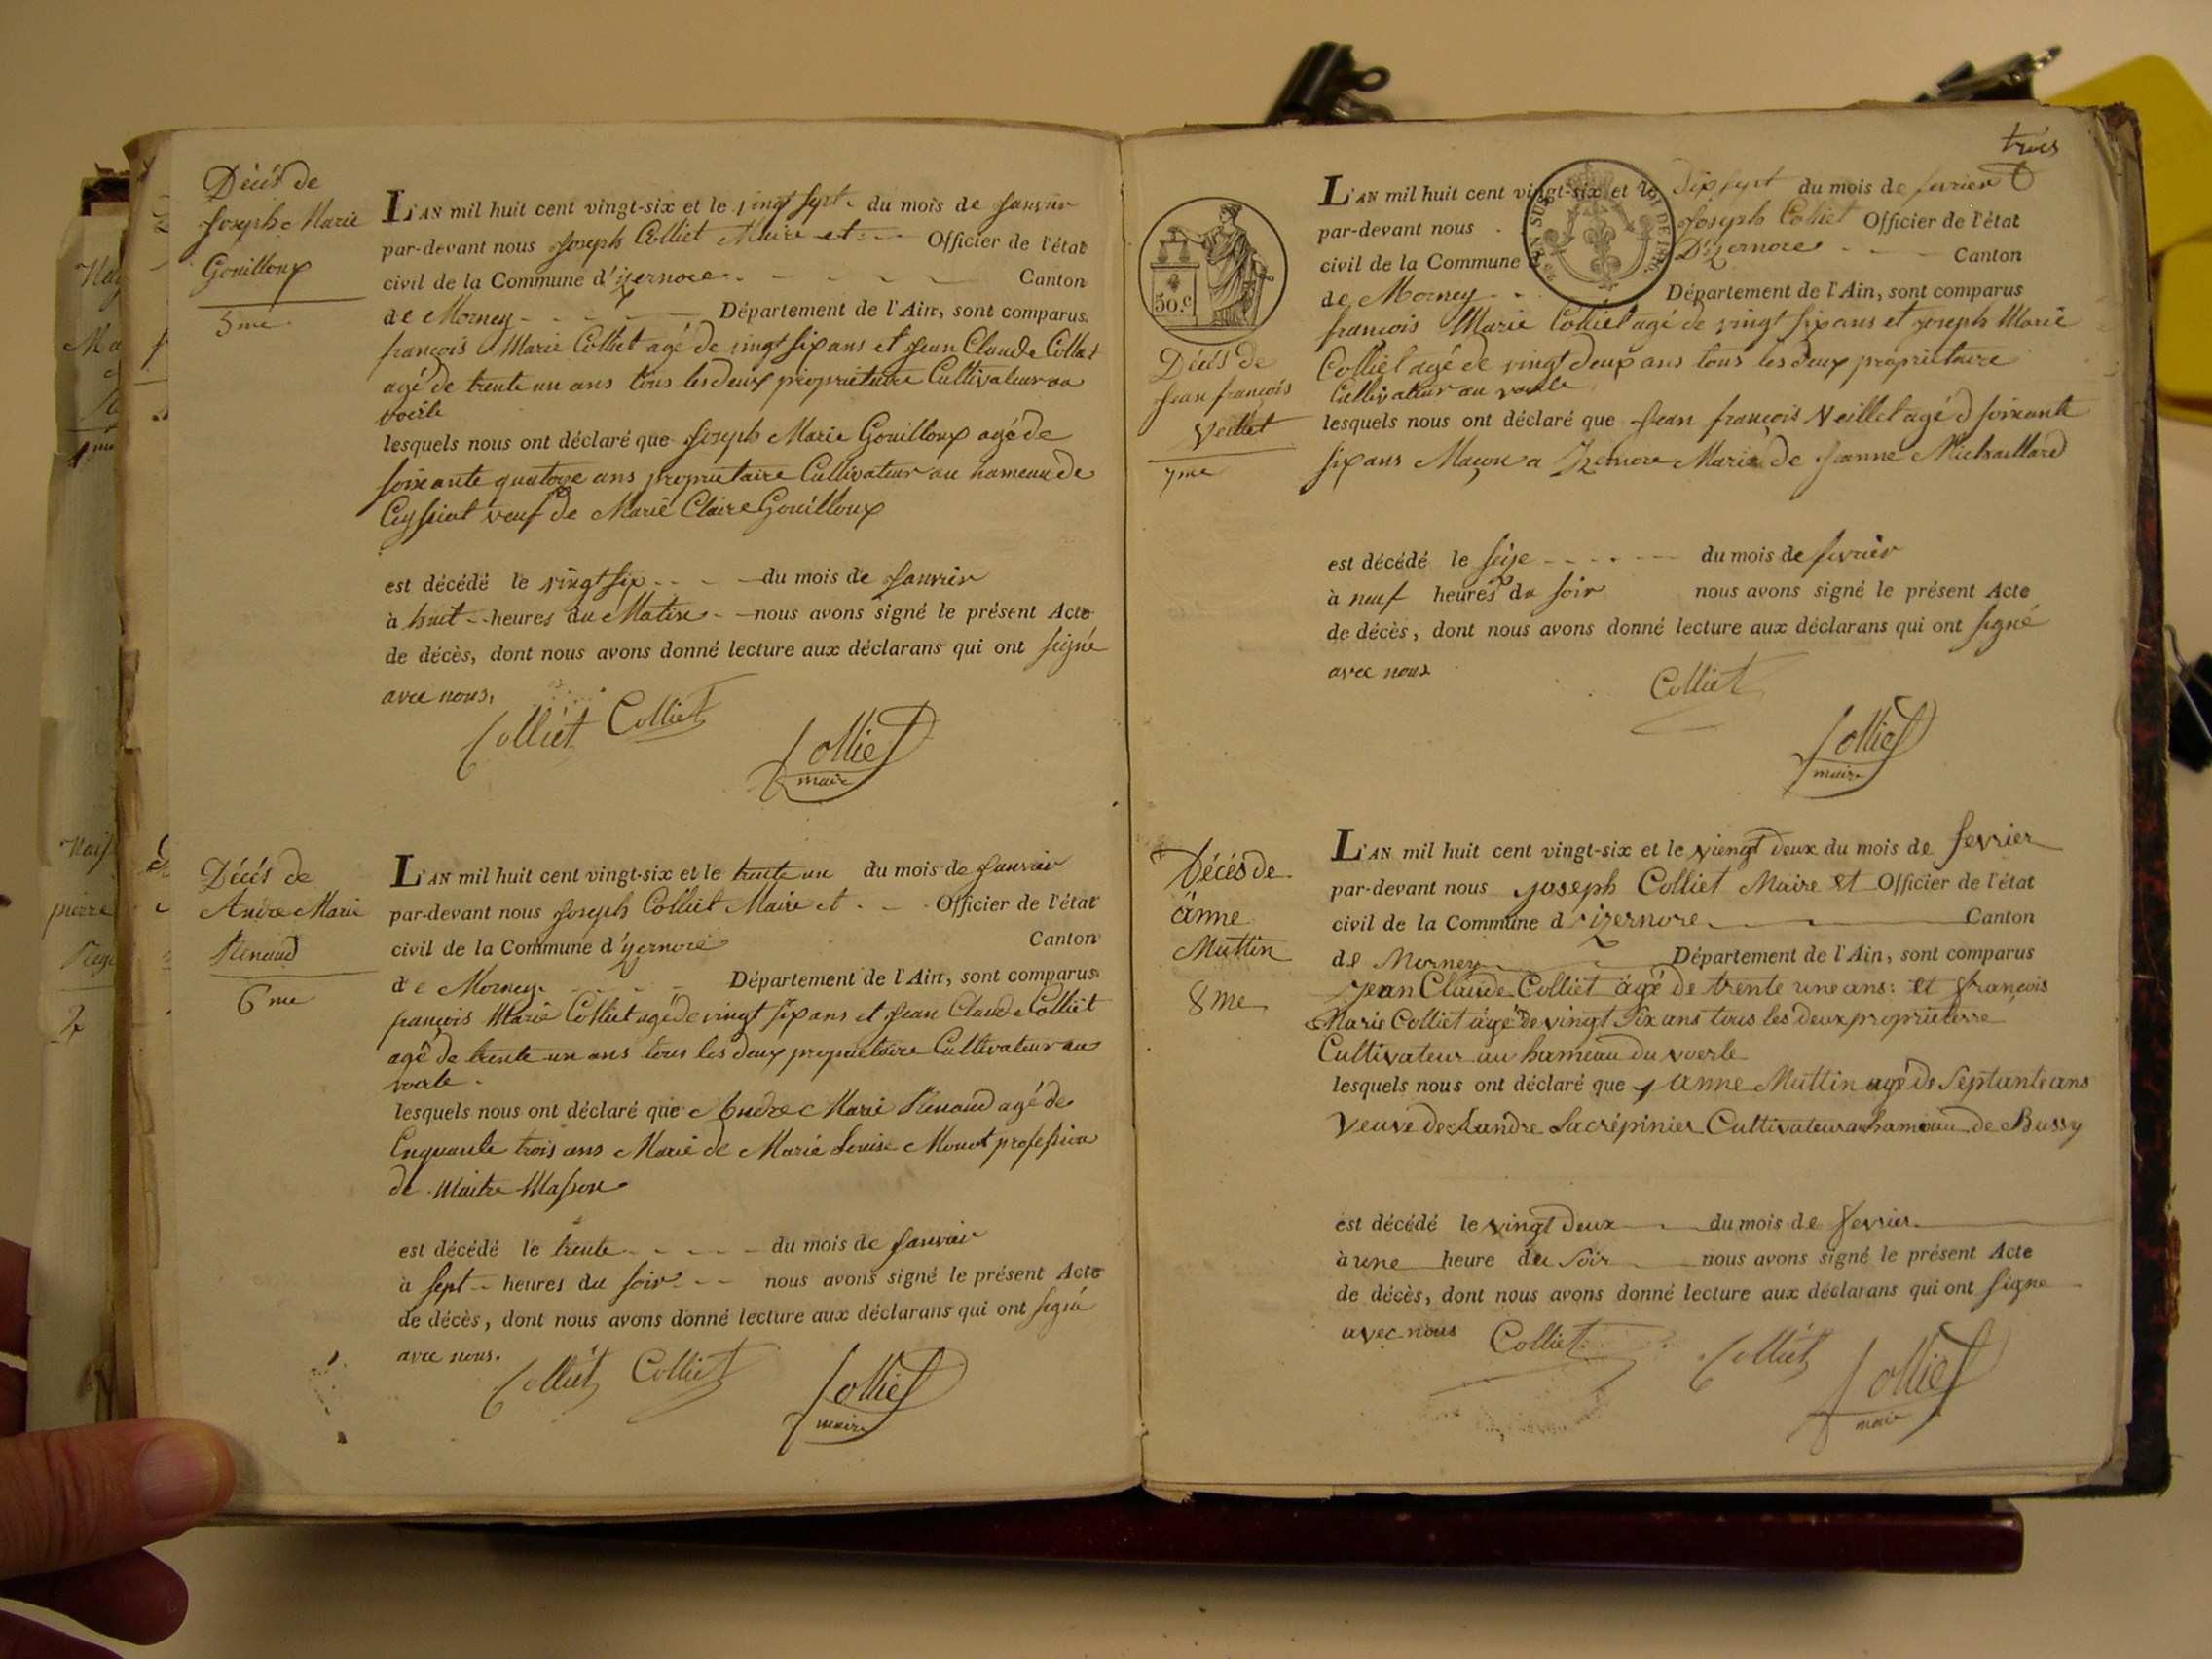 Décés de
Joseph Marie
Gouilloux
5me
L'AN mil huit cent vingt-six et le vingt sept du mois de janvier
par-devant nous Joseph Colliet Maire et Officier de l'état
civil de la Commune d'izernore Canton
de Morney Département de l'Ain, sont comparus
françois Marie Colliet agé de vingt six ans et jean Claude Colliet
agé de trente un ans tous les deux propriétaire Cultivateur au
voerle
lesquels nous ont déclaré que Joseph Marie Gouilloux agé de
soixante quatorze ans propriétaire Cultivateur au hameau de
Ceyssiat veuf de Marie Claire Gouilloux
est décédé le vingt six du mois de janvier
à huit heures du Matin nous avons signé le présent Acte
de décès, dont nous avons donné lecture aux déclarans qui ont signé
avec nous.
Colliet Colliet
Colliet
maire
Décés de
Andre Marie
Renaud
6me
L'AN mil huit cent vingt-six et le trente un du mois de janvier
par-devant nous Joseph Colliet Maire et Officier de l'état
civil de la Commune d'izernore Canton
de Morney Département de l'Ain, sont comparus
françois Marie Colliet agé de vingt six ans et jean Claude Colliet
agé de trente un ans tous les deux propriétaire Cultivateur au
voerle
lesquels nous ont déclaré que Andre Marie Renaud agé de
Cinquante trois ans Marié de Marie Louise Monot profession
de Maitre Masson
est décédé le trente du mois de janvier
à sept heures du soir nous avons signé le présent Acte
de décès, dont nous avons donné lecture aux déclarans qui ont signé
avec nous.
Colliet Colliet
Colliet
maire
trois
50.c
Décés de
jean françois
Veillet
7me
L'AN mil huit cent vingt-six et dix sept du mois de fevrier
par-devant nous Joseph Colliet Officier de l'état
civil de la Commune D'izernore Canton
de Morney Département de l'Ain, sont comparus
françois Marie Colliet agé de vingt six ans et joseph Marie
Colliet agé de vingt deux ans tous les deux propriétaire
Cultivateur au voerle
lesquels nous ont déclaré que jean françois Veillet agé d soixante
six ans Maçon a Izernore Marié de jeanne Michaillard
est décédé le seize du mois de fevrier
à neuf heures du soir nous avons signé le présent Acte
de décès, dont nous avons donné lecture aux déclarans qui ont signé
avec nous
Colliet
Colliet
maire
Décés de
anne
Muttin
8me
L'AN mil huit cent vingt-six et le viengt deux du mois de fevrier
par-devant nous joseph Colliet Maire et Officier de l'état
civil de la Commune d izernore Canton
de Morney Département de l'Ain, sont comparus
jean Claude Colliet agé de trente une ans: et françois
Marie Colliet agé de vingt Six ans tous les deux proprietere
Cultivateur au hameau du voerle
lesquels nous ont déclaré que anne Muttin agé de Septante ans
Veuve de andre Lacrépinier Cultivateur au hameau de Bussy
est décédé le vingt deux du mois de fevrier
à une heure du Soir nous avons signé le présent Acte
de décès, dont nous avons donné lecture aux déclarans qui ont signe
avec nous Colliet Colliet
Colliet
maire